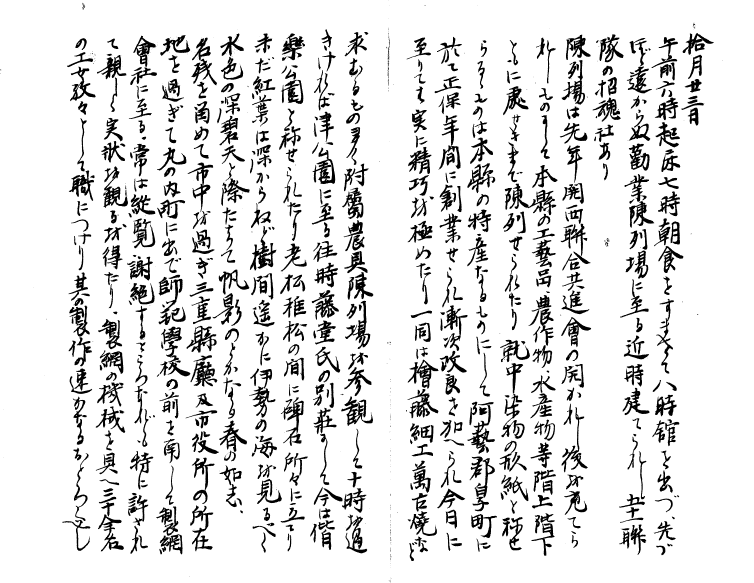 拾月廿三日
午前六時起床七時朝食をすませて八時舘を出づ、先づ
ほど遠からぬ勸業陳列場に至る近時建てられし五十一聯
隊の招魂社あり
陳列場は先年関西聯合共進會の開かれし後に充てら
れしものにして本縣の工藝品、農作物、水産物等階上階下
ともに處せきまで陳列せられたり 就中染物の形紙と称せ
らるゝものは本縣の特産なるものにして阿藝郡皐町に
於て正保年間に創業せられ漸次改良を加へられ今日に
至りては実に精巧を極めたり 一同は檜藤細工萬古焼など
求むるもの多く附属農具陳列場を参観して十時を過
きければ津公園に至る往時藤堂氏の別荘にして今は偕
樂公園と称せられたり老松稚松の間に碑石所々に立てり
未だ紅葉は深からねど樹間遥かに伊勢の海を見るべく
水色の深碧天と際たちて帆影のどかなる春の如し、
名残を留めて市中を過ぎ三重縣廳及市役所の所在
地を過ぎて丸の内町に出で師範學校の前を南して製網
會社に至る、常は縦覧謝絶するところなれども特に許され
て親しく実状を観るを得たり、製網の機械を具へ三十余名
の工女孜々として職につけり其の製作の速かなるおどろくべし